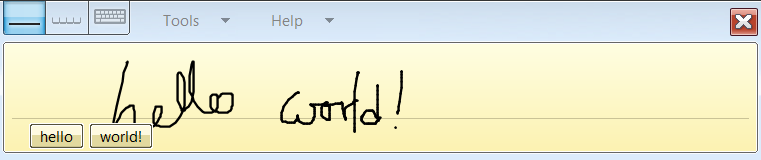 Tools Help
hello world!
hello world!